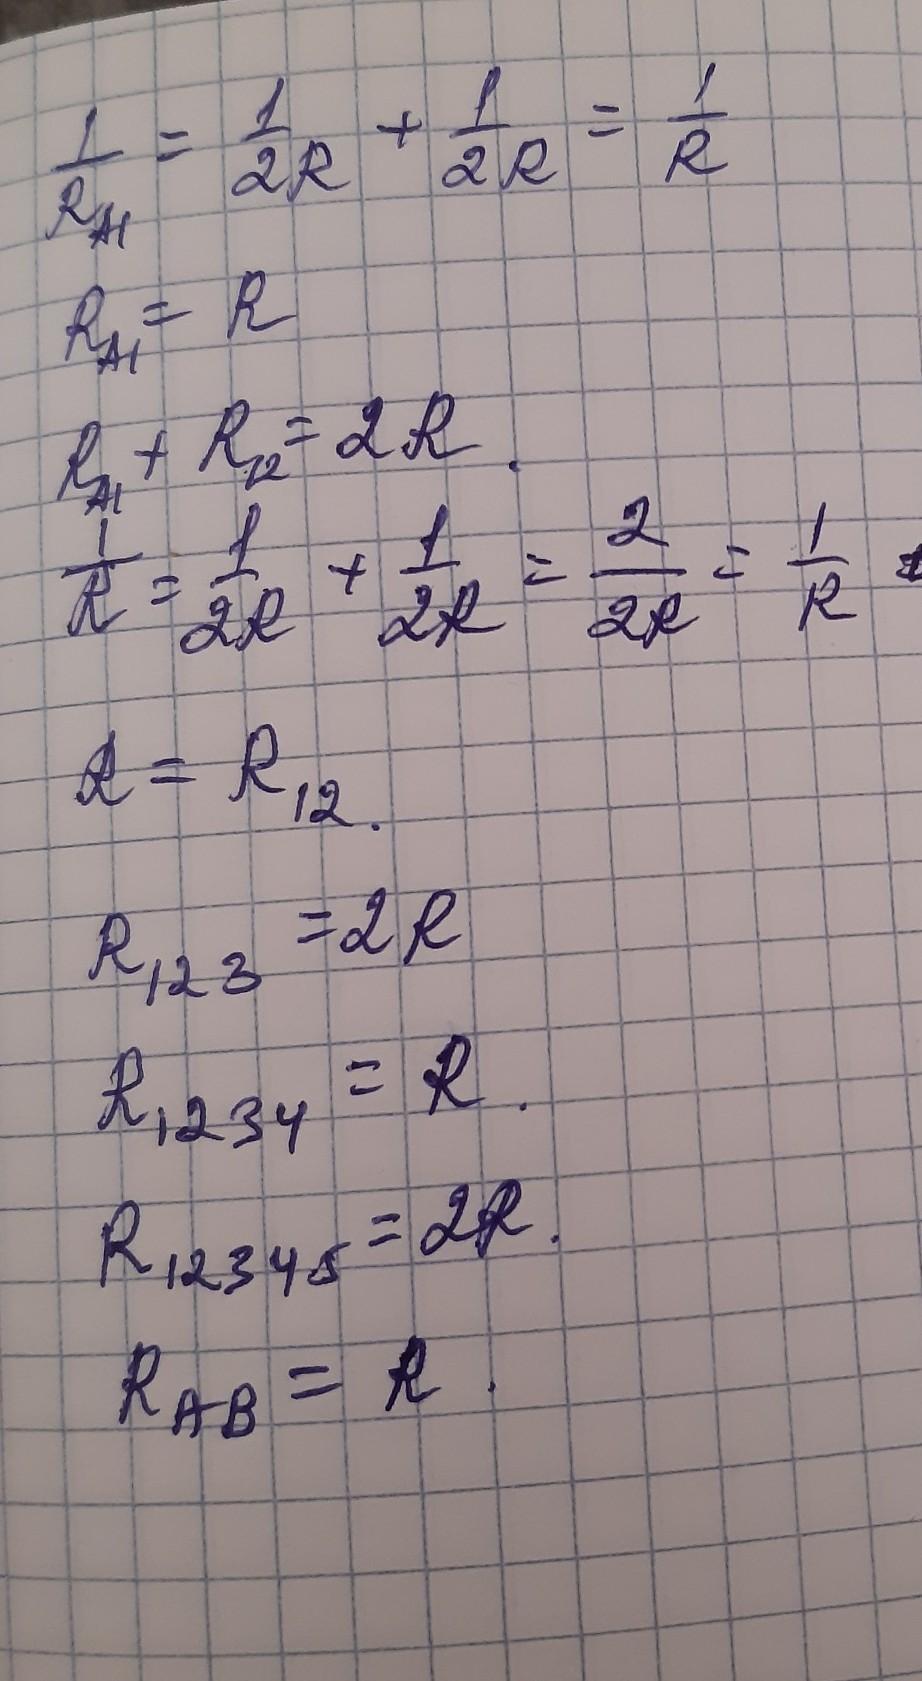 1/R_A1 = 1/2R + 1/2R = 1/R
R_A1 = R
R_A1 + R_12 = 2R.
1/R = 1/2R + 1/2R = 2/2R = 1/R
R = R_12.
R_123 = 2R
R_1234 = R.
R_12345 = 2R.
R_AB = R.